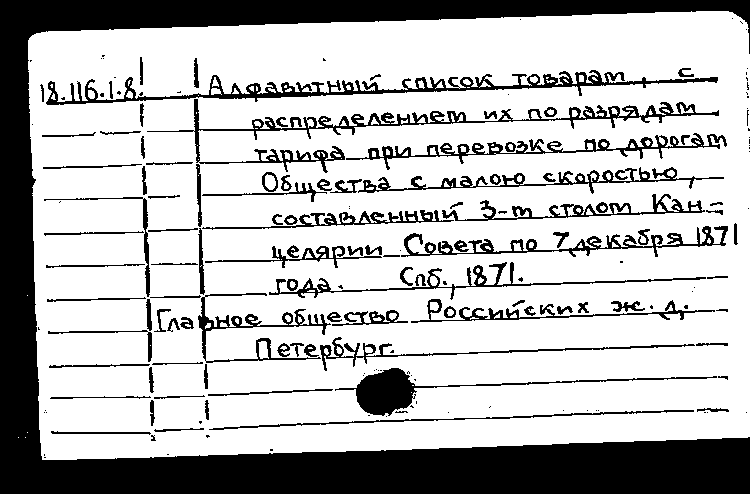 18.116.1.8. Алфавитный список товарам, с
распределением их по разрядам
тарифа при перевозке по дорогам
Общества с малою скоростью,
составленный 3-м столом Кан-
целярии Совета по 7 декабря 1871
года. Спб., 1871.
Главное общество Российских ж. д.
Петербург.